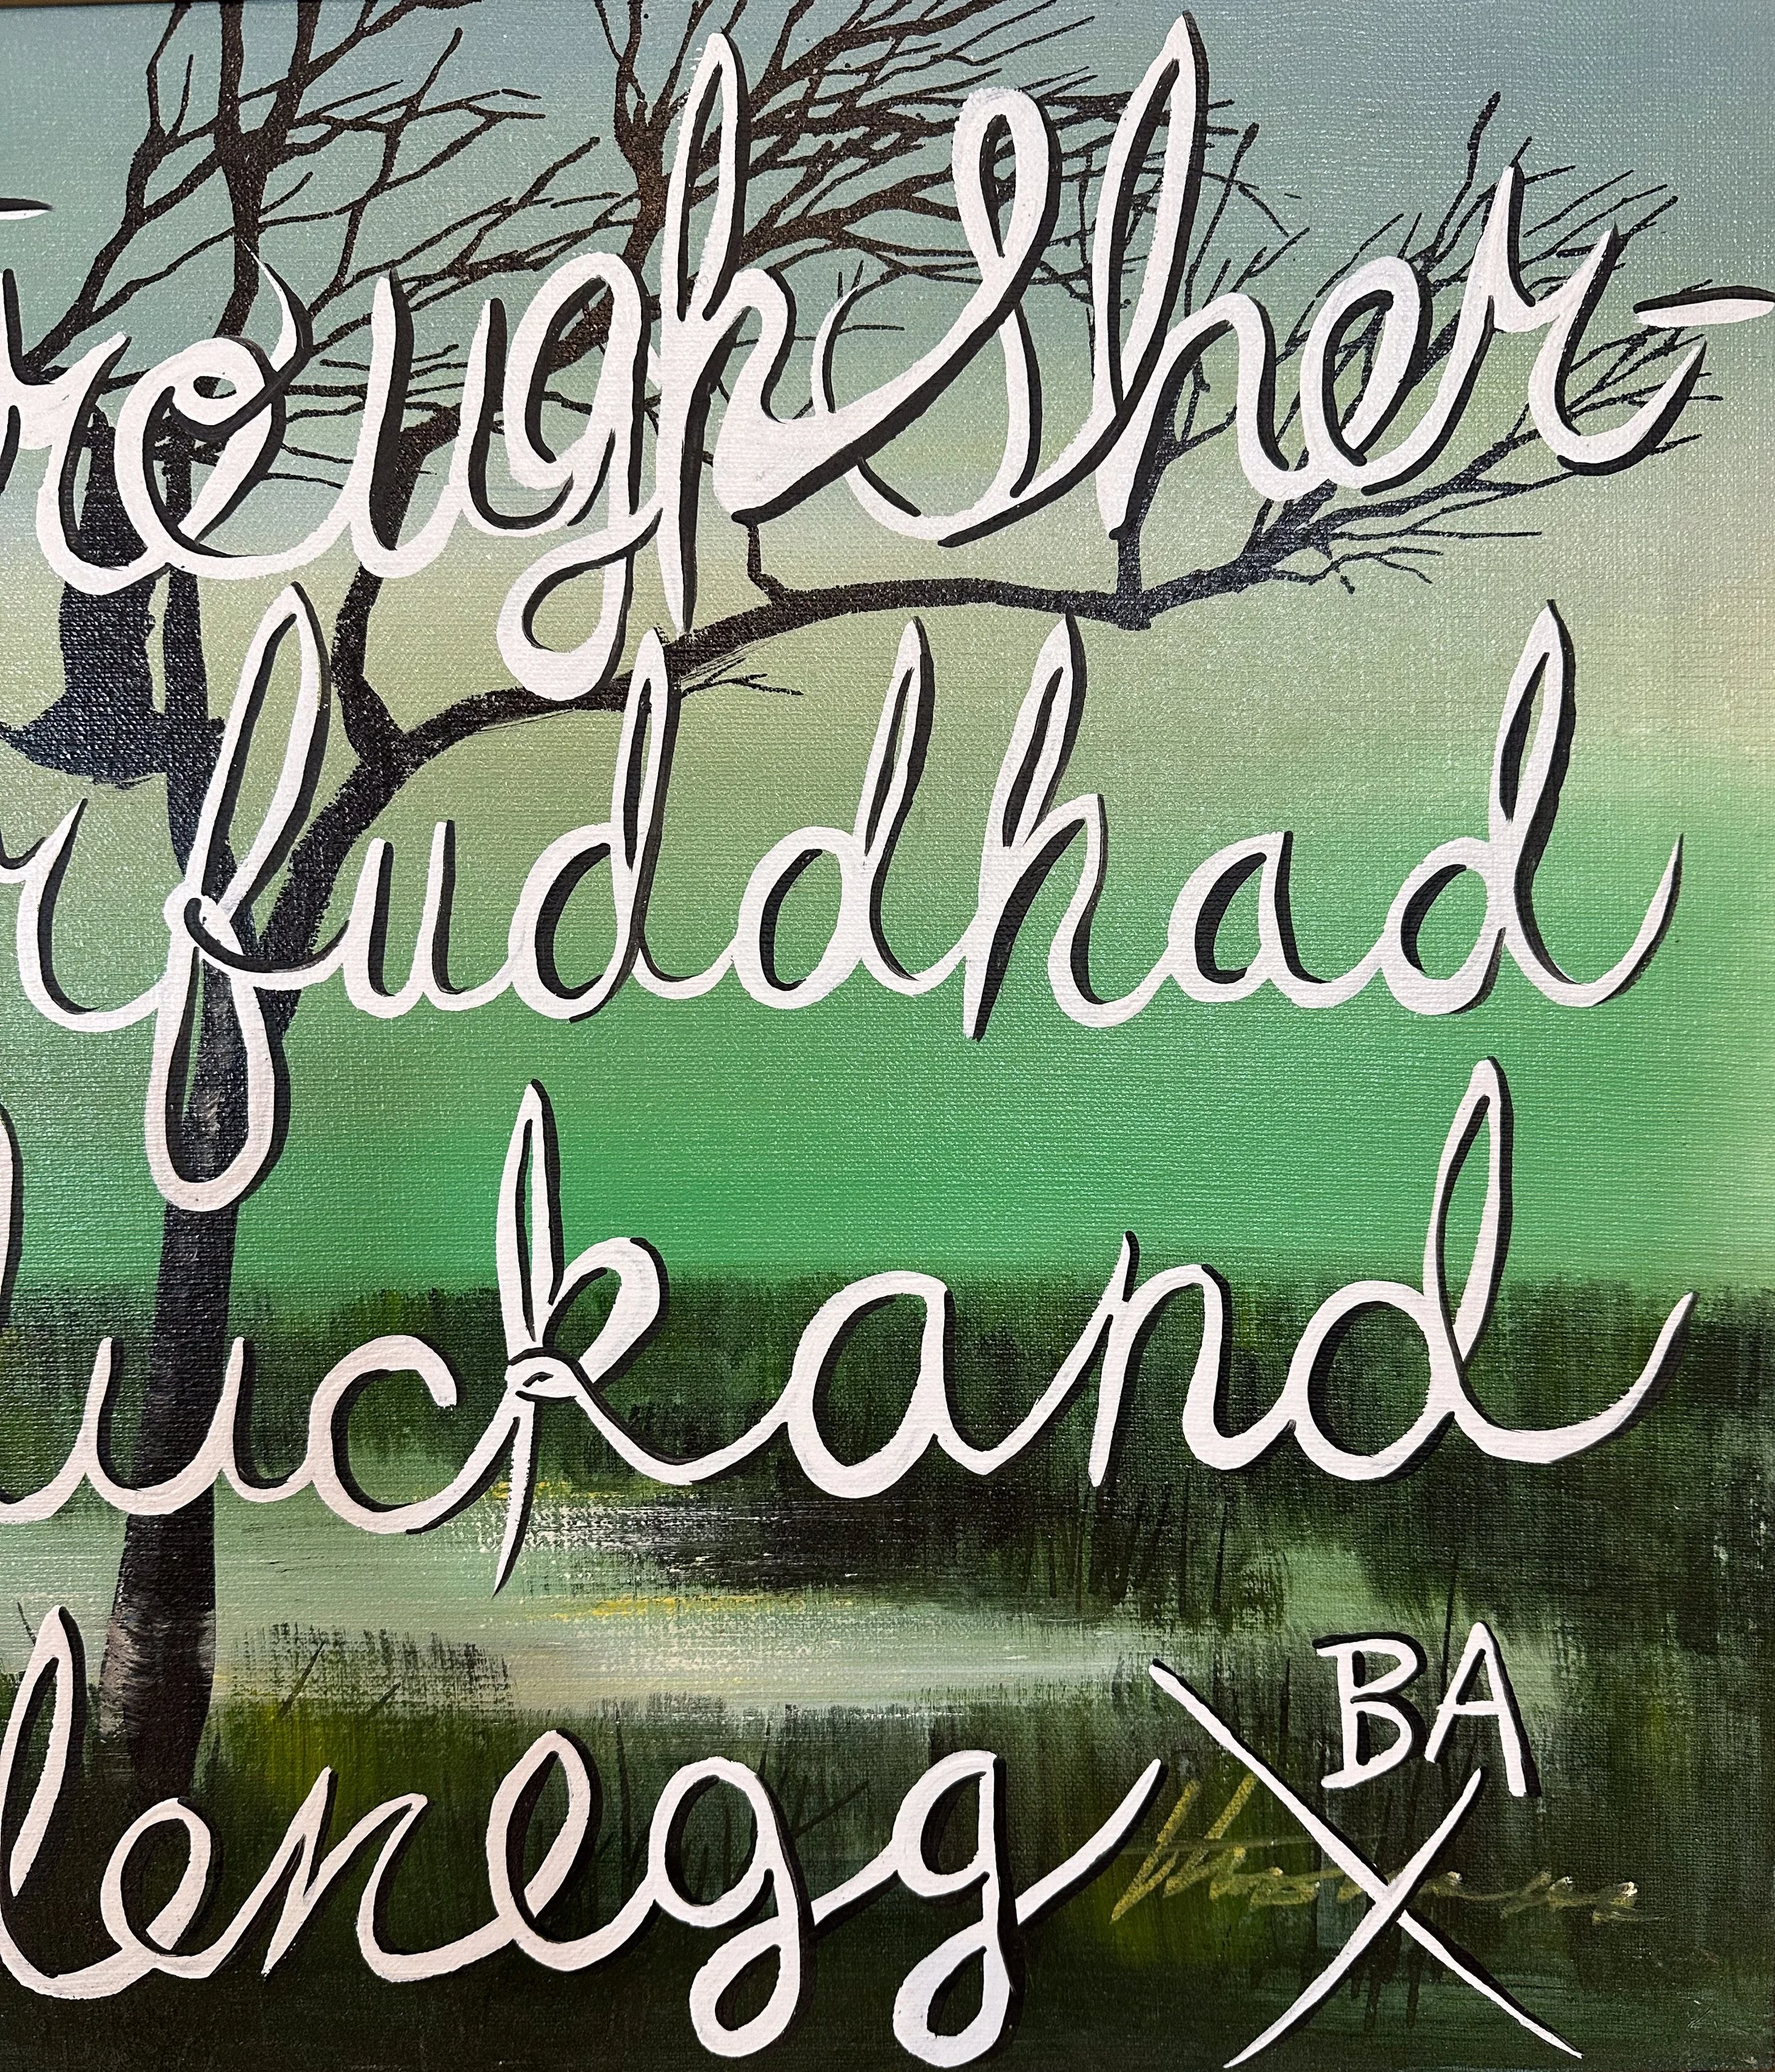 rough Sher-
rfudd had
luck and
lenegg
BA